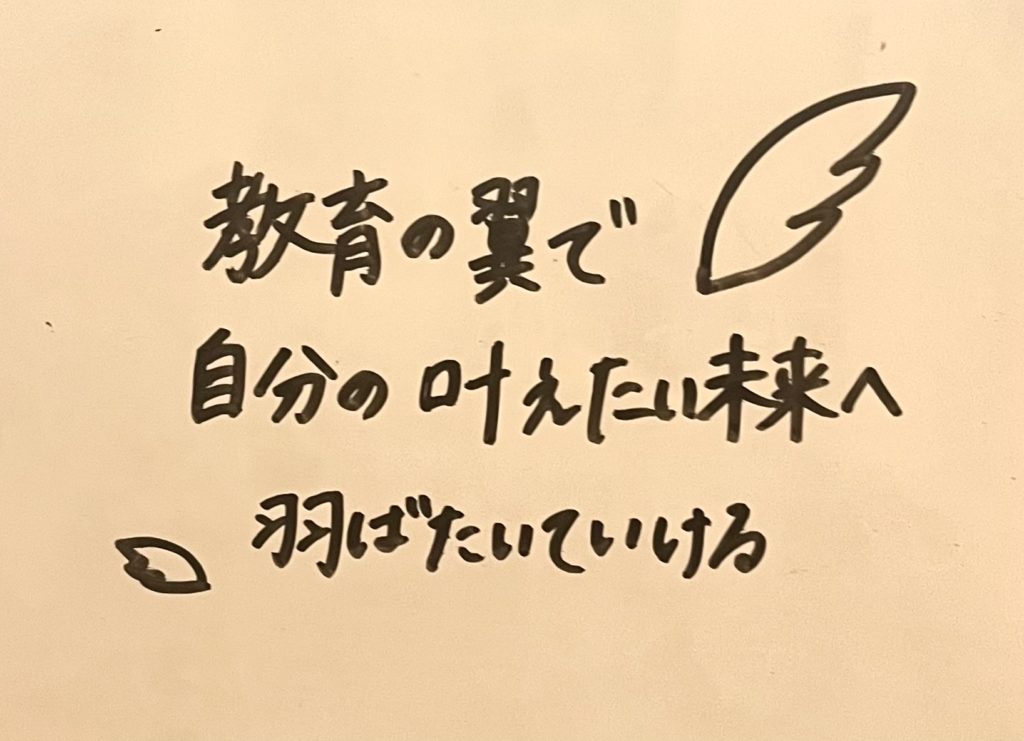 教育の翼で
自分の叶えたい未来へ
羽ばたいていける